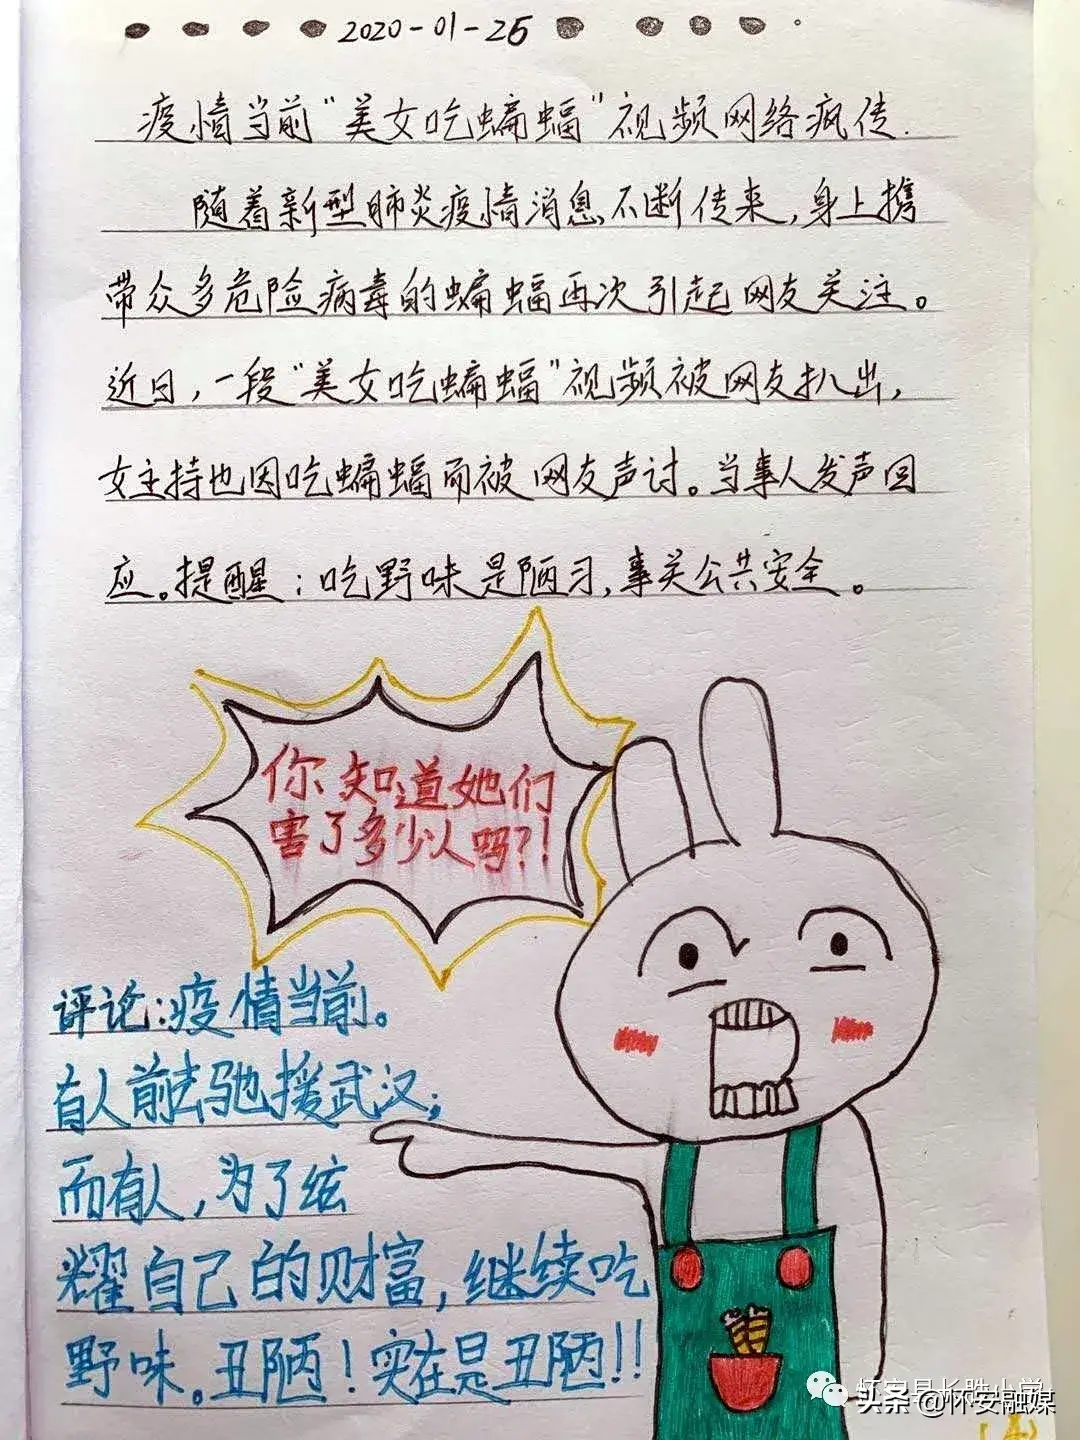 2020-01-26
疫情当前"美女吃蝙蝠"视频网络疯传.
随着新型肺炎疫情消息不断传来,身上携
带众多危险病毒的蝙蝠再次引起网友关注。
近日,一段"美女吃蝙蝠"视频被网友扒出,
女主持也因吃蝙蝠而被网友声讨。当事人发声回
应。提醒:吃野味是陋习,事关公共安全。
你知道她们
害了多少人吗?!
评论:疫情当前。
有人前去驰援武汉;
而有人,为了炫
耀自己的财富,继续吃
野味。丑陋!实在是丑陋!!
怀安县长胜小学
头条@怀安融媒